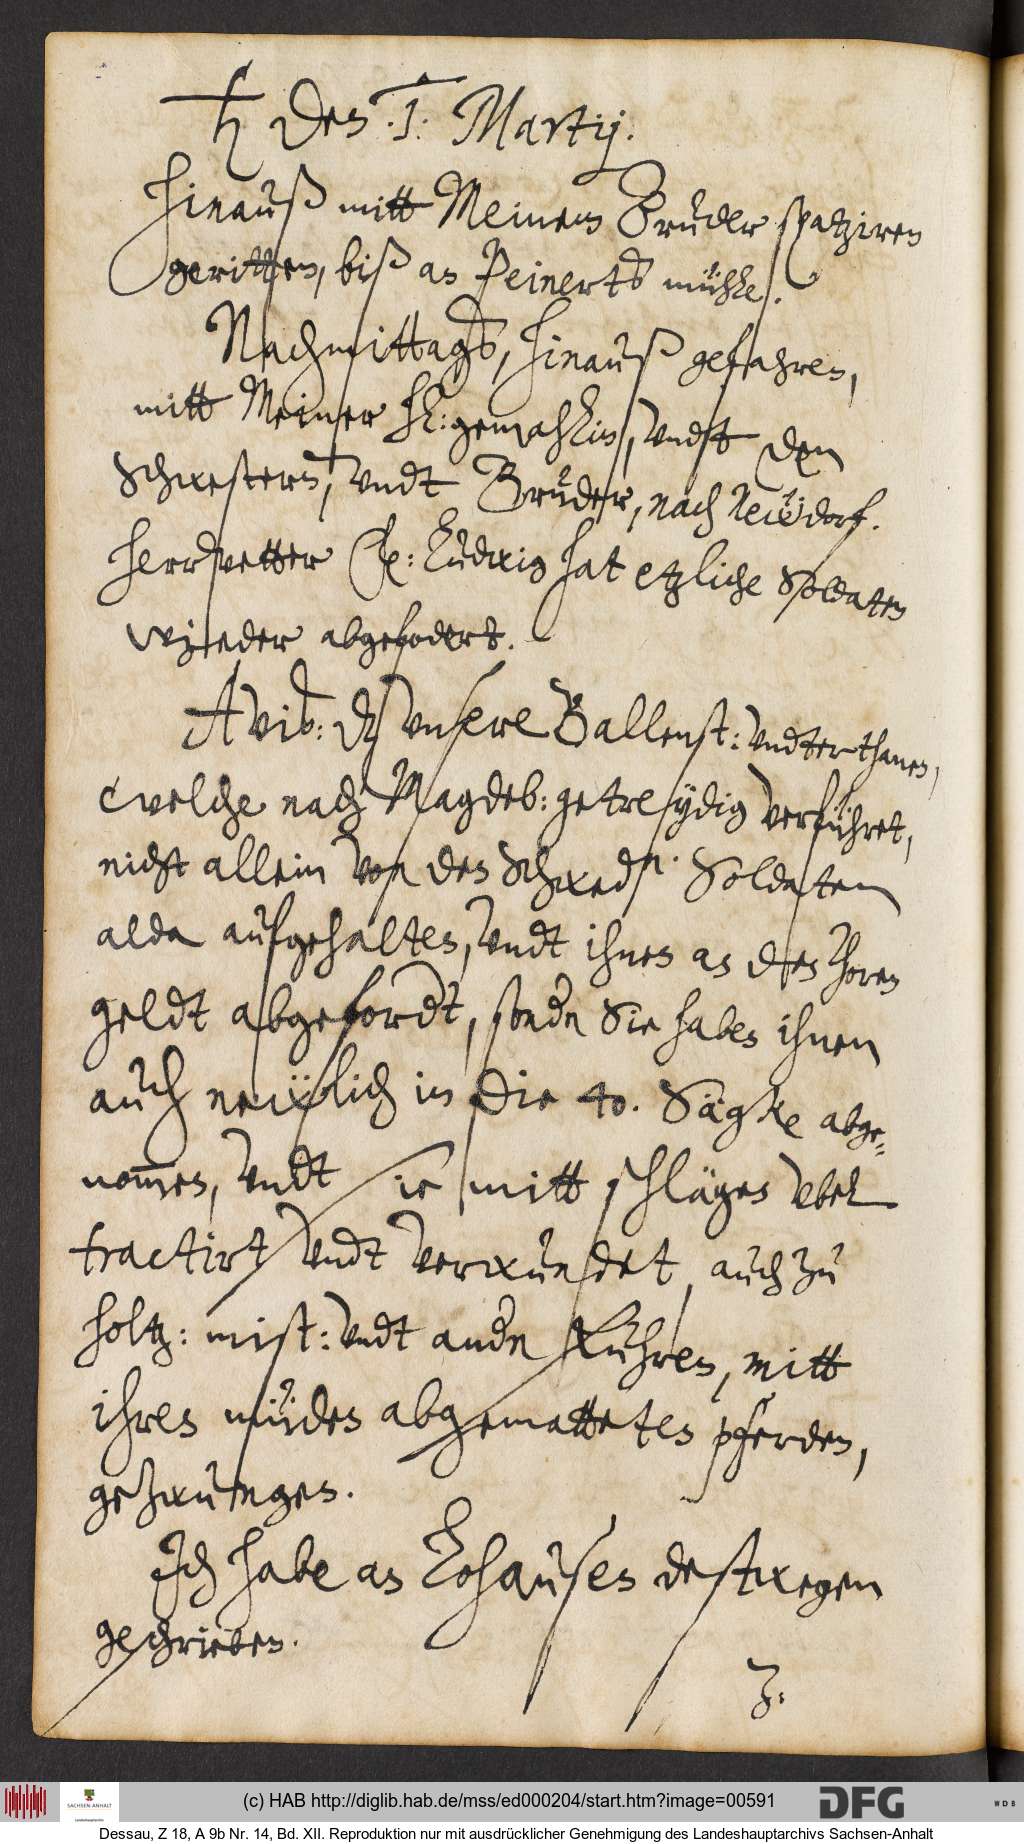 ♄ den 1. Martij.
Hinauß mitt Meinem Bruder spatziren
geritten, biß an Peinerts mühle.
Nachmittags, hinauß gefahren,
mitt Meiner hl: gemahlin, undt den
Schwestern, undt Bruder, nach Neẅdorf.
Herrvetter F: Ludwig hat etzliche Soldaten
wieder abgefodert.
Avis: dz unsere Ballenst: undterthanen,
welche nach Magdeb: getreydig verführet,
nicht allein von den Schwed: Soldaten
alda aufgehalten, undt ihnen an den thoren
geldt abgefordt, sonden Sie haben ihnen
auch newlich in die 40. Säcke abge-
nommen, undt sie mitt schlägen ubel
tractirt undt verwundet, auch zu
holtz: mist: undt anden Fuhren, mitt
ihren müden abgematteten pferden,
gezwungen.
Ich habe an Lohausen destwegen
geschrieben.
(c) HAB http://diglib.hab.de/mss/ed000204/start.htm?image=00591
SACHSEN-ANHALT
Landeshauptarchiv
DFG
WDB
Dessau, Z 18, A 9b Nr. 14, Bd. XII. Reproduktion nur mit ausdrücklicher Genehmigung des Landeshauptarchivs Sachsen-Anhalt